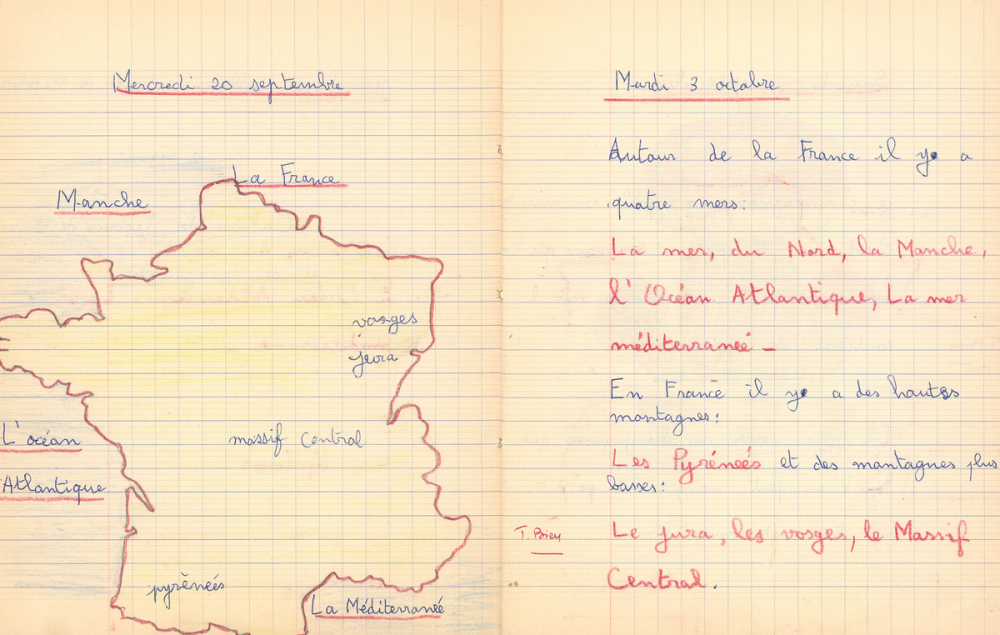 Mercredi 20 septembre
La France
Manche
vosges
jura
massif Central
L'océan
Atlantique
pyréneés
La Méditerraneé
Mardi 3 octobre
Autour de la France il y a
quatre mers:
La mer, du Nord, la Manche,
l'Océan Atlantique, La mer
méditerraneé -
En France il y a des hautes
montagnes:
Les Pyréneés et des montagnes plus
basses:
T. Bien
Le jura, les vosges, le Massif
Central.